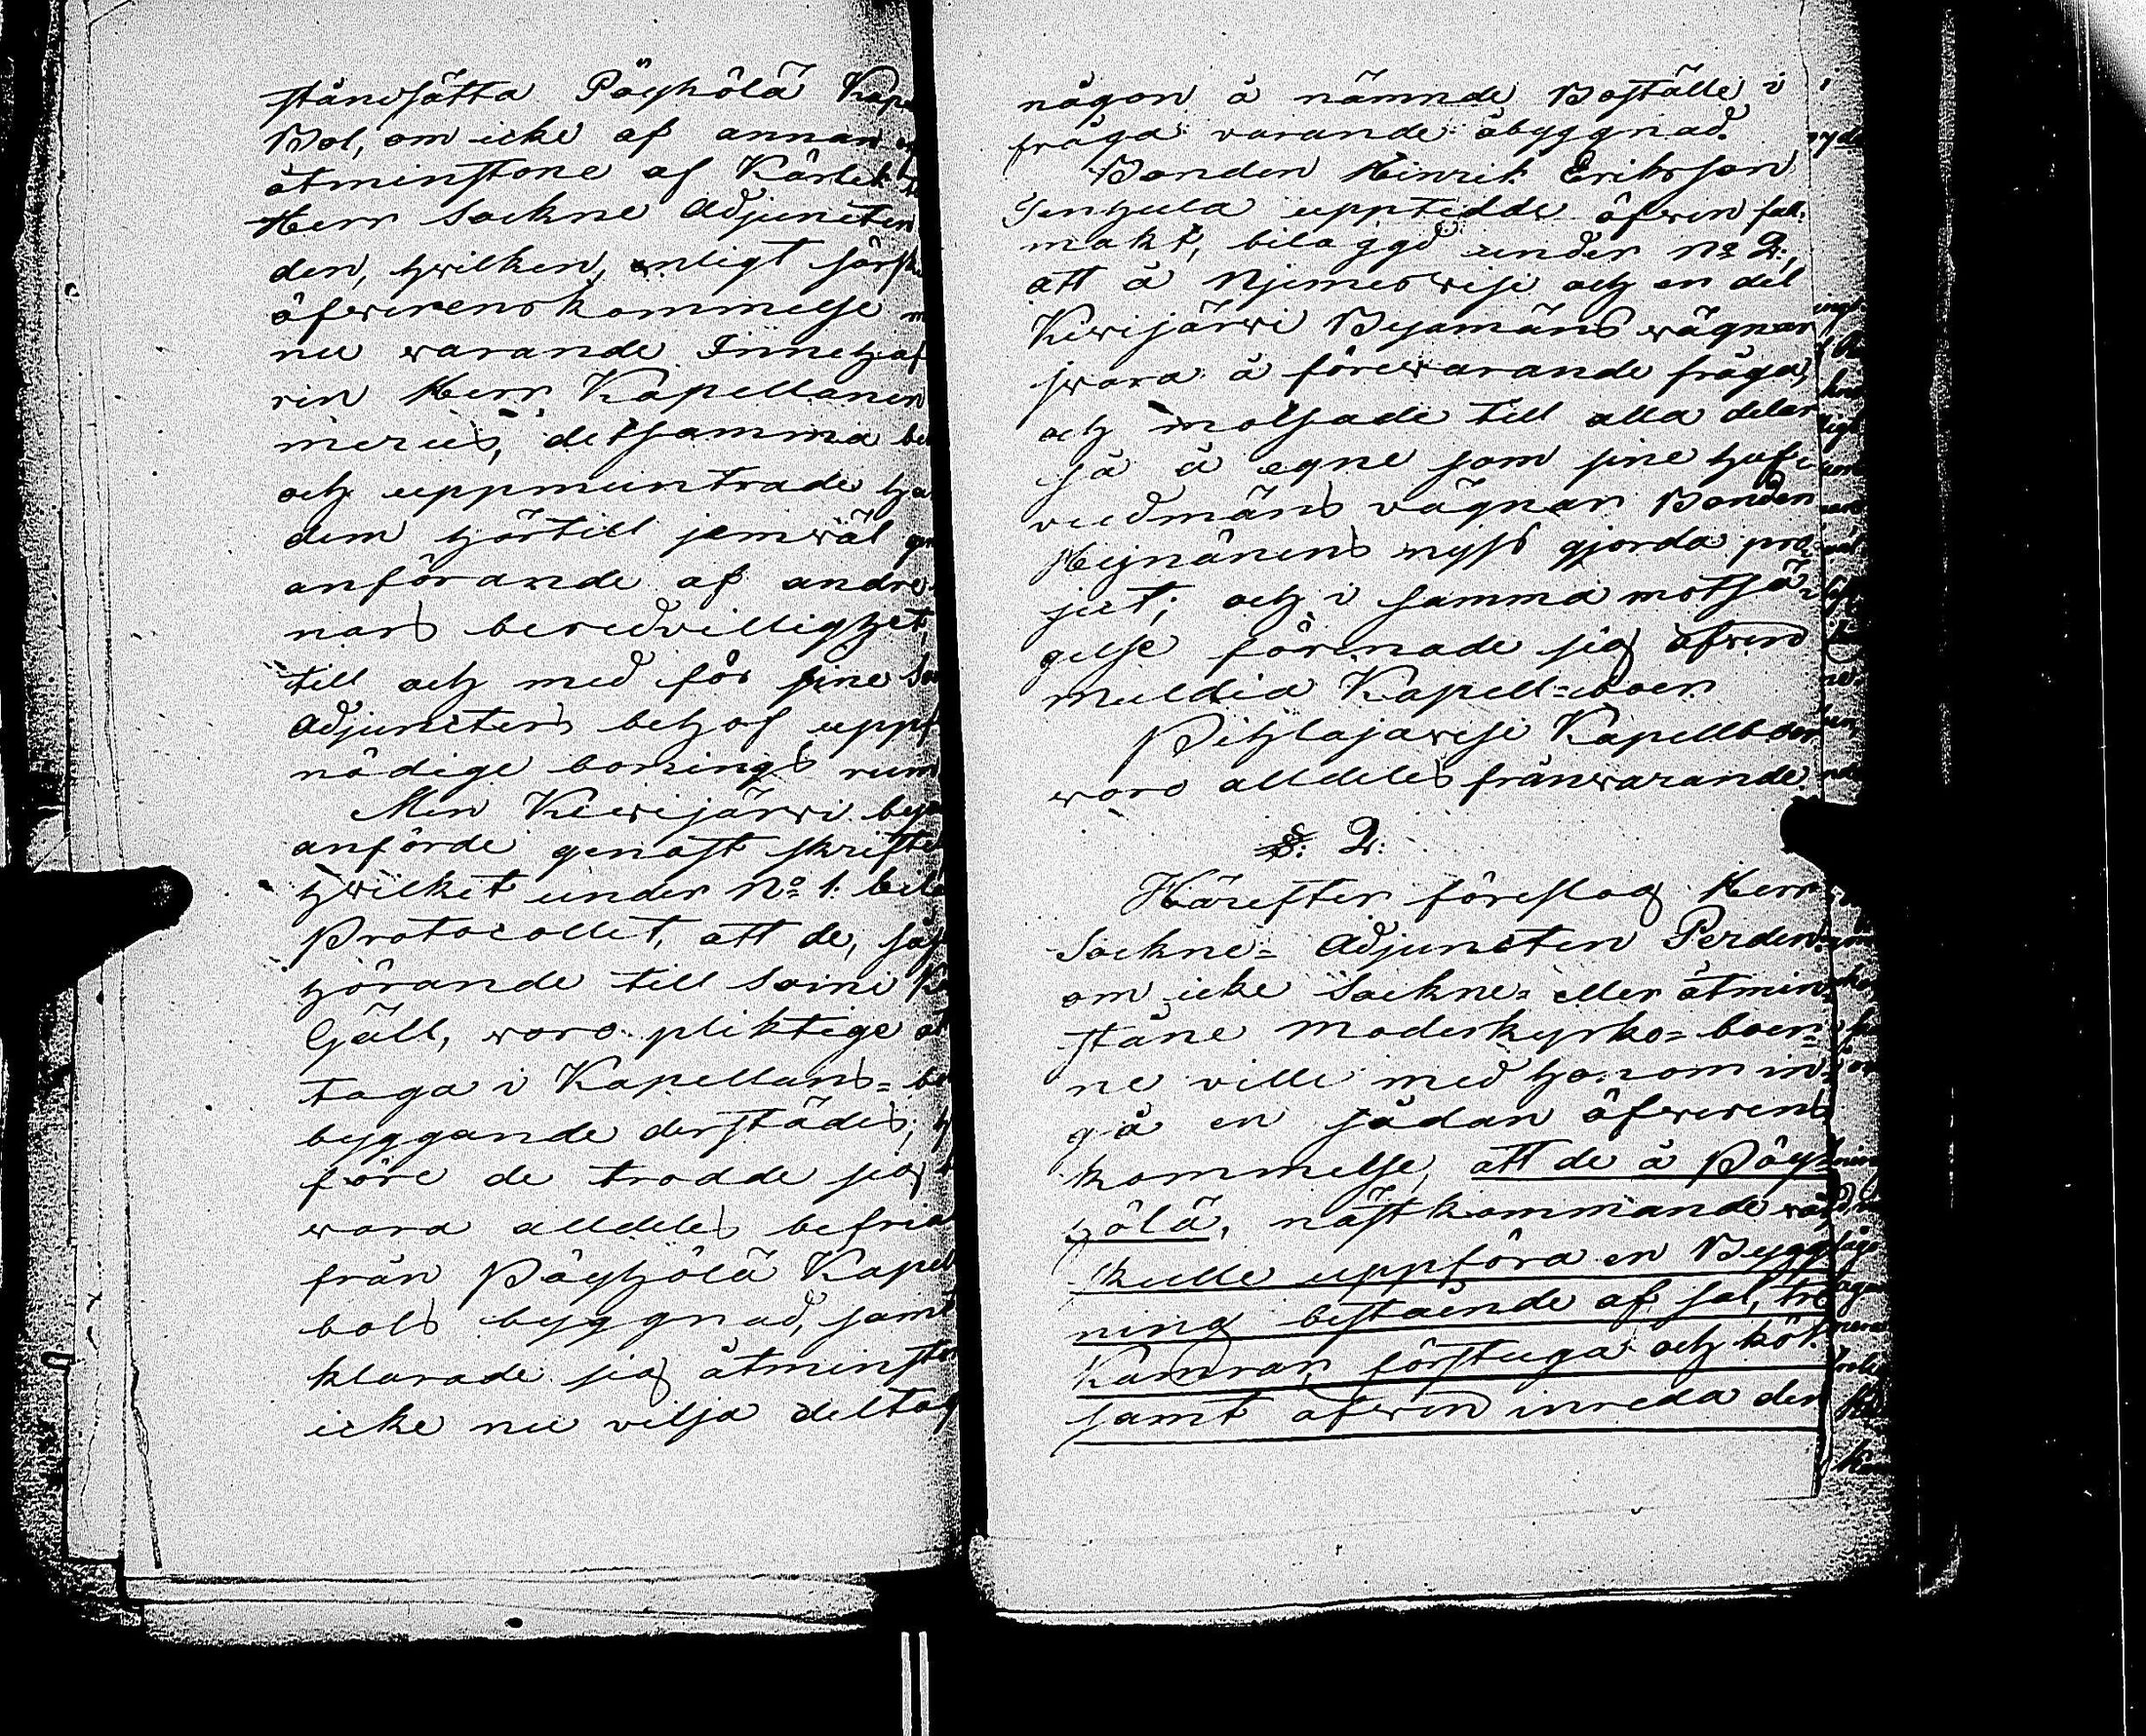 ståndsätta Pöyhölä Kape
Bol, om icke af annan
åtminstone af Kärlek
Herr Sockne Adjuncten
den, hwilken, enligt särsk
öfwerenskommelse m
nu warande Innehaf
ren Herr Kapellanen
merus, detsamma be
och uppmuntrade ha
dem härtill jemwäl ge
anförande af andre
nars beredvillighet,
till och med för sine So
Adjuncters behof uppf
nödige bonings rum
Men Kiwijärwi bya
anförde genast skrifte
hwilket under No 1. bila
Protocollet, att de, så
hörande till Saini Ka
Gäll, woro pliktige at
taga i Kapellans=bo
byggande derstädes, h
före de trodde sig
wara alldeles befria
från Pöyhölä Kapel
bols byggnad, samt
klarade sig åtminston
icke nu vilja deltag
någon å nämnde Boställe i
fråga varande åbyggnad.
Bonden Hinrik Eriksson
upptedde öfwen full-
makt, bilaggd under No 2.,
att å Njemeswesi och en del
Kiwijärwi Byamäns wägnar
swara å förewarande fråga,
och motsade till alla delar
så å egne som sine huf-
vudmäns vägnar Bonden
Hejnänens nyss gjorda pro-
ject; och i samma motsä-
gelse förenade sig äfwen
Muldia Kapell=boer
Pihlajawesi Kapellboer
woro alldeles frånwarande.
§. 2.
Härefter föreslog Herr
Sockne=Adjuncten Perden,
om icke Sockne= eller åtmin-
stone Moderkyrko=boer=
ne ville med honom in-
gå en sådan öfwerens
kommelse, att de å Pöy-
hölä, nästkommande wår,
skulle uppföra en Bygg-
ning bestående af sal, tre
Kamrar, förstuga och kök
samt äfwen inreda den